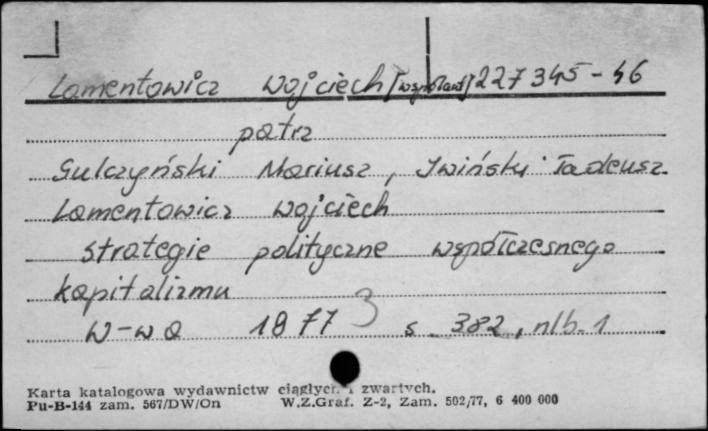 Lamentowicz Wojciech [współaut] 227345-46
patrz
Gulczyński Mariusz, Iwiński Tadeusz
Lamentowicz Wojciech
Strategie polityczne współczesnego
kapitalizmu
W-wa 1977 3 s. 382, nlb. 1
Karta katalogowa wydawnictw ciągłych i zwartych.
Pu-B-144 zam. 567/DW/On W.Z.Graf. Z-2, Zam. 502/77, 6 400 000